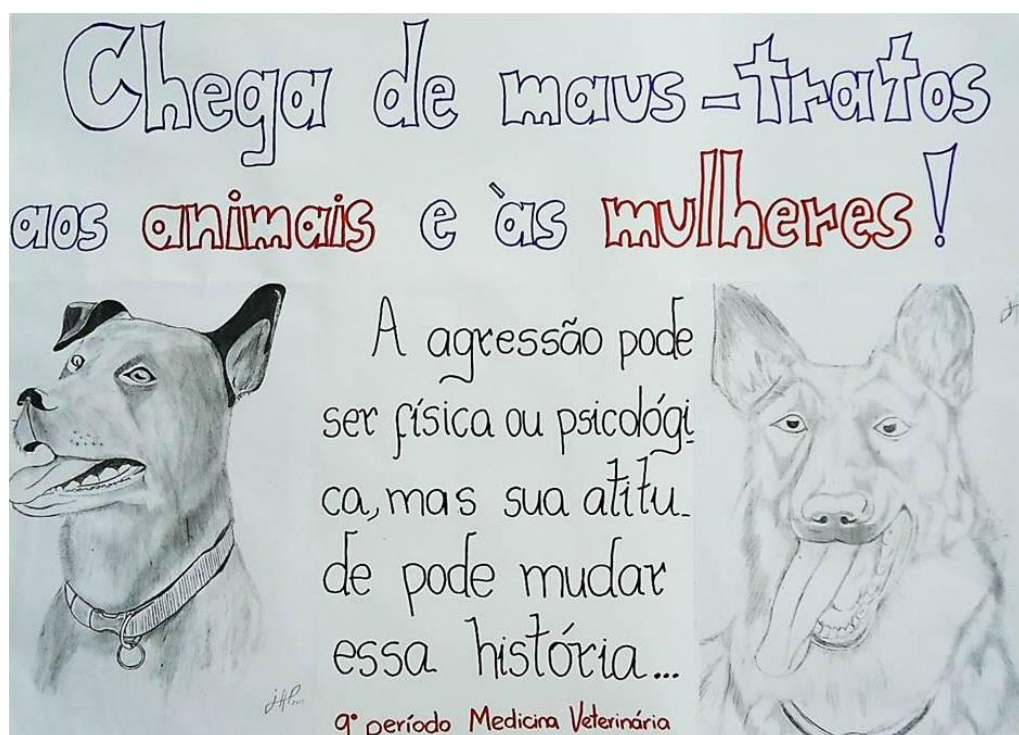 Chega de maus-tratos
aos animais e às mulheres!
A agressão pode
ser física ou psicológi
ca, mas sua atitu_
de pode mudar
essa história...
9° período Medicina Veterinária